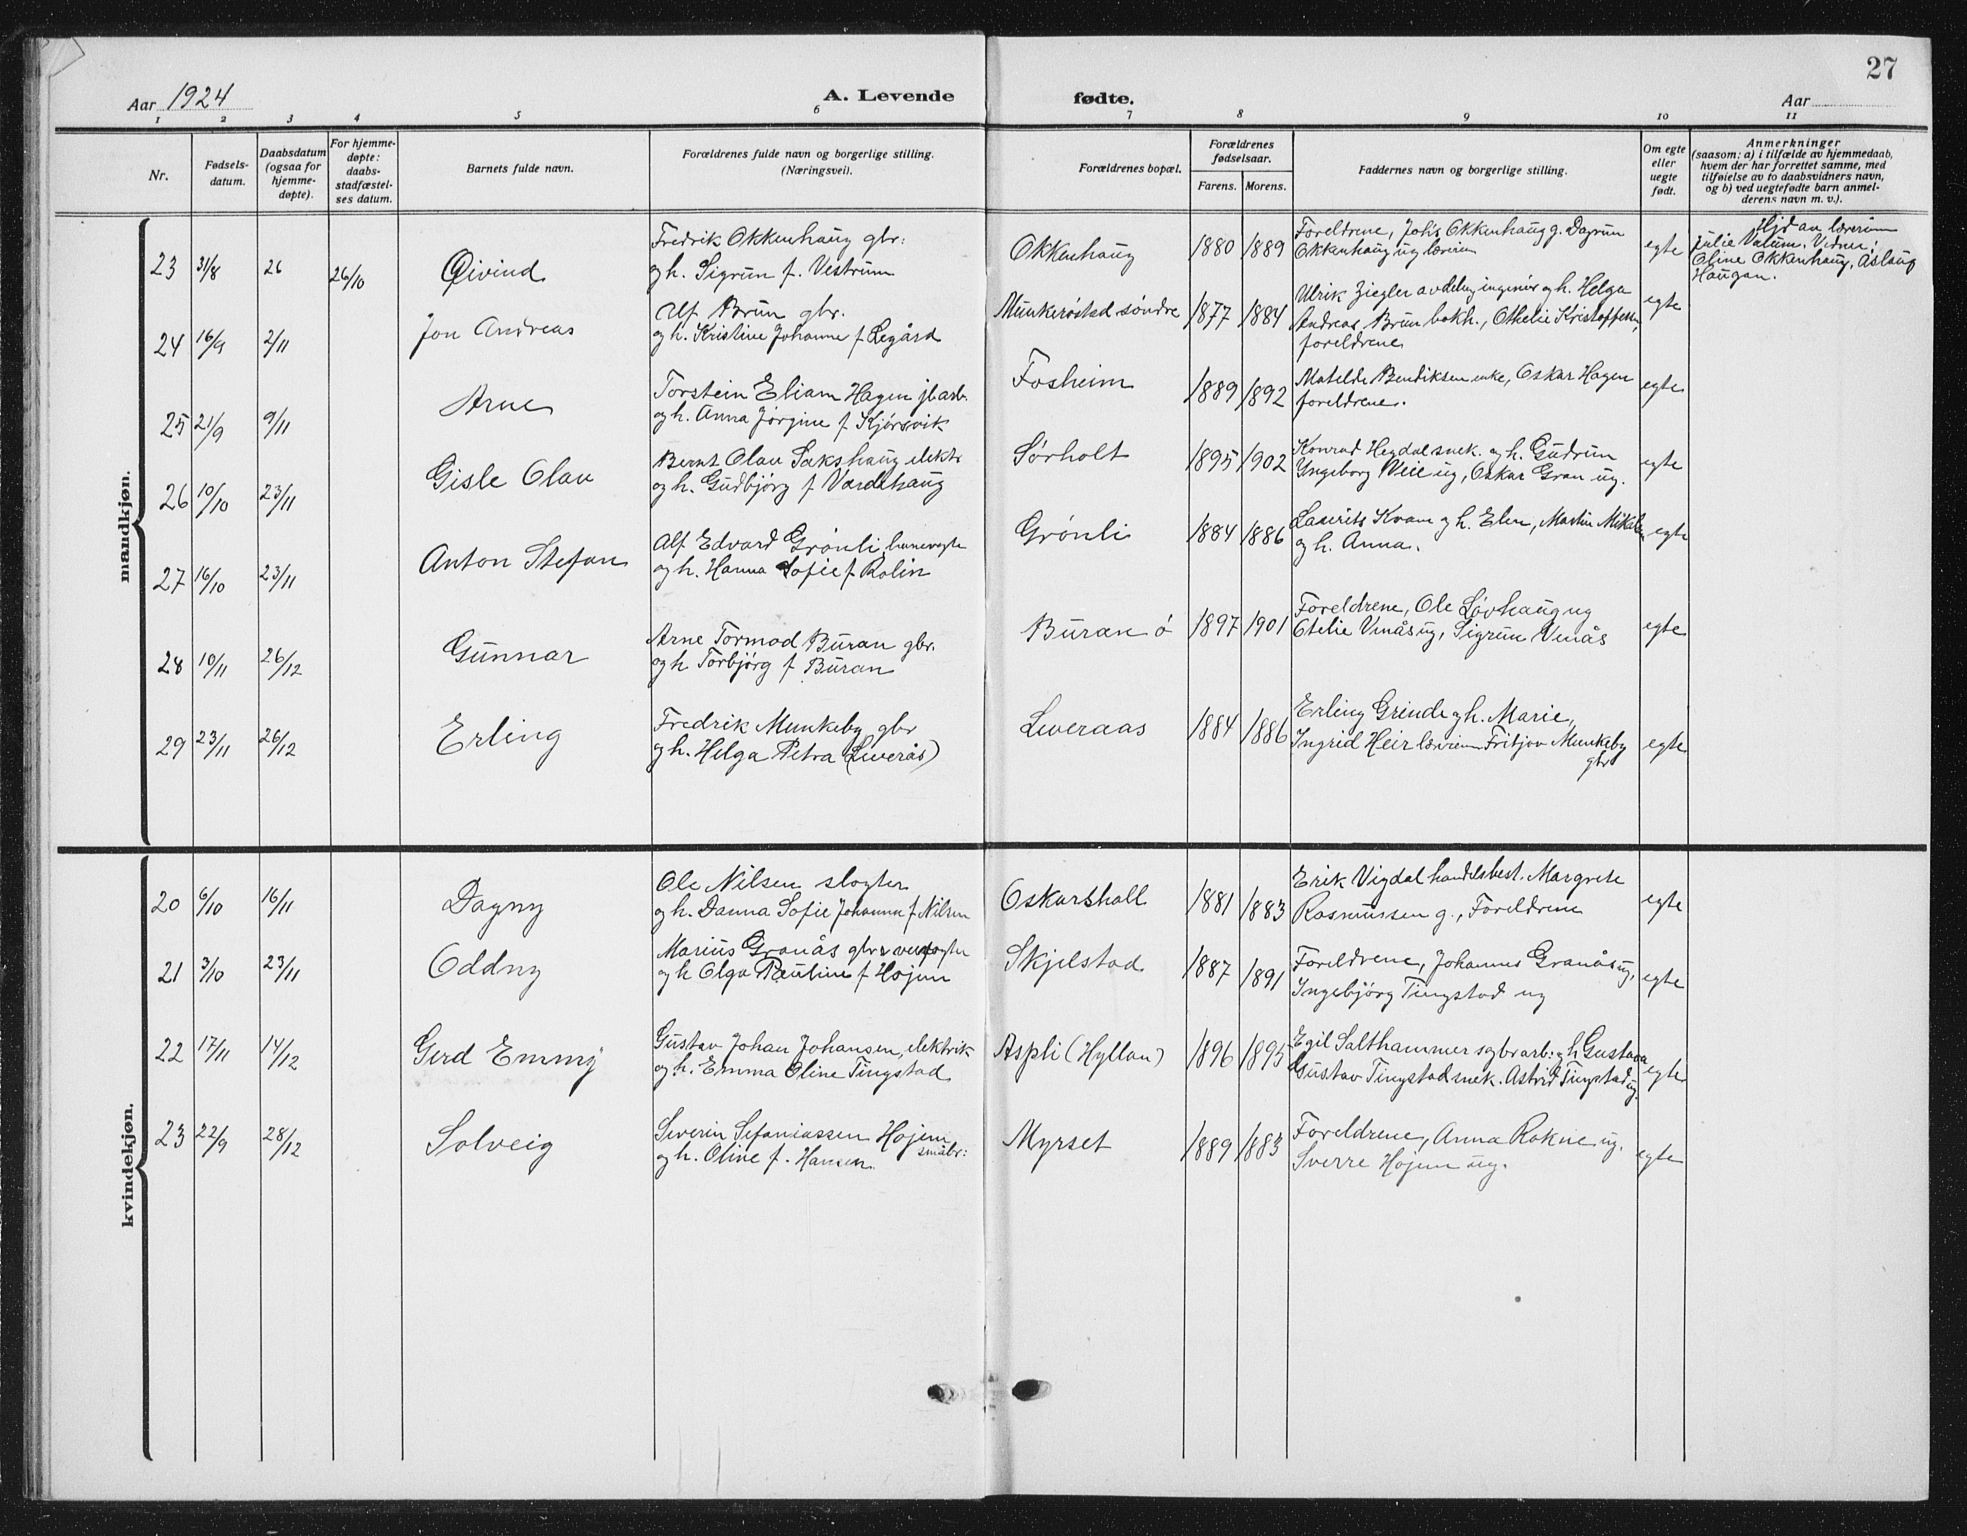 27
Aar 1924
A. Levende fødte.
Aar
1 2 3 4 5 6 7 8 9 10 11
Nr.
Fødsels-
datum.
Daabsdatum
(ogsaa for
hjemme-
døpte).
For hjemme-
døpte:
daabs-
stadfæstel-
ses datum.
Barnets fulde navn.
Forældrenes fulde navn og borgerlige stilling.
(Næringsvei).
Forældrenes bopæl.
Forældrenes
fødselsaar.
Farens. Morens.
Faddernes navn og borgerlige stilling.
Om egte
eller
uegte
født.
Anmerkninger
(saasom: a) i tilfælde av hjemmedaab,
hvem der har forrettet samme, med
tilføielse av to daabsvidners navn,
og b) ved uegtefødte barn anmel-
derens navn m. v.).
mandkjøn.
23 31/8 26 26/10 Øivind
Fredrik Okkenhaug gbr:
og h. Sigrun f. Vestrum
Okkenhaug 1880 1889
Foreldrene, Johs Okkenhaug g. Dagrun
Okkenhaug ug lærerin
egte
Hjd av lærerin
Julie Valum. Vidner:
Oline Okkenhaug, Aslaug
Haugan.
24 16/9 2/11 Jon Andreas
Alf Brun gbr.
og h. Kristine Johanne f. Legård
Munkerøstad søndre 1877 1884
Ulrik Ziegler avdelingingeniør og h. Helga
Andreas Brun bokh., Othelie Kristoffersen,
foreldrene
egte
25 21/9 9/11 Arne
Torstein Eliam Hagen jb.arb.
og h. Anna Jørgine f. Kjørsvik
Fosheim 1889 1892
Matelde Bendiksen enke, Oskar Hagen
foreldrene.
egte
26 10/10 23/11 Gisle Olav
Bernt Olav Sakshaug elektr
og h. Gudbjørg f. Vardehaug
Sørholt 1895 1902
Konrad Hegdal snek. og h. Gudrun
Yngeborg Veie ug, Oskar Gran ug.
egte
27 16/10 23/11 Anton Stefan
Alf Edvard Grønli, banevogte
og h. Hanna Sofie f. Rolin
Grønli 1884 1886
Laurits Kvam og h. Elen, Martin Mikalsen
og h. Anna.
egte
28 10/11 26/12 Gunnar
Arne Tormod Buran gbr.
og h Torbjørg f. Buran
Buran ø 1897 1901
Foreldrene, Ole Løvhaug ug
Otelie Vinås ug, Sigrun Vinås
egte
29 23/11 26/12 Erling
Fredrik Munkeby gbr
og h. Helga Petra (Leverås)
Leveraas 1884 1886
Erling Grinde og h. Marie,
Ingrid Heir lærerin Fritjov Munkeby
gbr
egte
kvindekjøn.
20 6/10 16/11 Dagny
Ole Nilsen slogter
og h. Danna Sofie Johanna f. Nilsen
Oskarshall 1881 1883
Erik Vigdal handelsbest. Margrete
Rasmussen g., Foreldrene
egte
21 3/10 23/11 Oddny
Marius Granås gbr
og h Olga Pauline f. Hojem
Skjelstad 1887 1891
Foreldrene, Johannes Granås ug,
Ingebjørg Tingstad ug
egte
22 17/11 14/12 Gerd Emmy
Gustav Johan Johansen, elektrik
og h. Emma Oline Tingstad
Aspli (Hyllan) 1896 1895
Egil Salthammer sgbrarb: og h Gustava
Gustav Tingstad snek. Astrid Tingstad ug.
egte
23 22/9 28/12 Solveig
Severin Stefaniassen Hojem
småbr:
og h. Oline f. Hansen
Myrset 1889 1883
Foreldrene, Anna Rokne ug.
Sverre Hojem ug.
egte